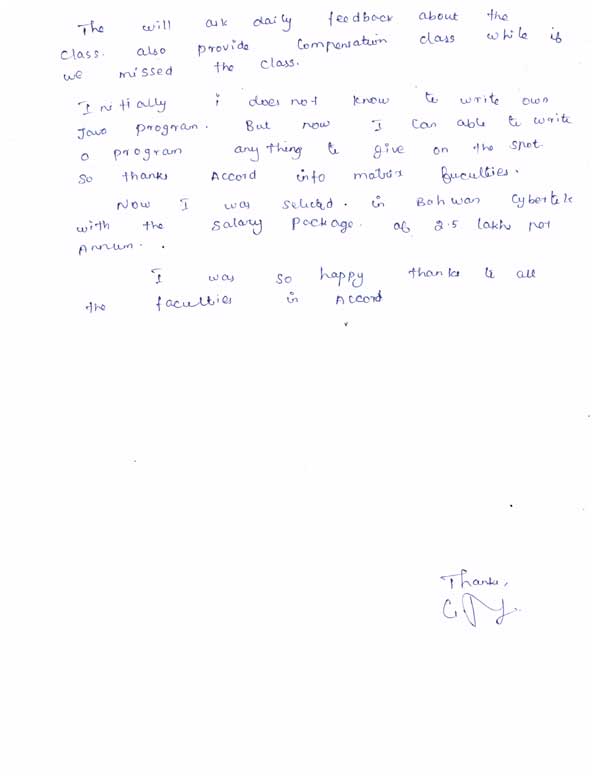 The will ask daily feedback about the
class. also provide Compensation class while if
we missed the class.
Initially i does not know to write own
Java program. But now I can able to write
a program any thing to give on the spot.
So thanks Accord info matrix faculties.
Now I was selected. in Bahwan Cybertek
with the Salary Package. of 2.5 lakhs
Annum.
I was so happy thanks to all
the faculties in Accord
Thanks,